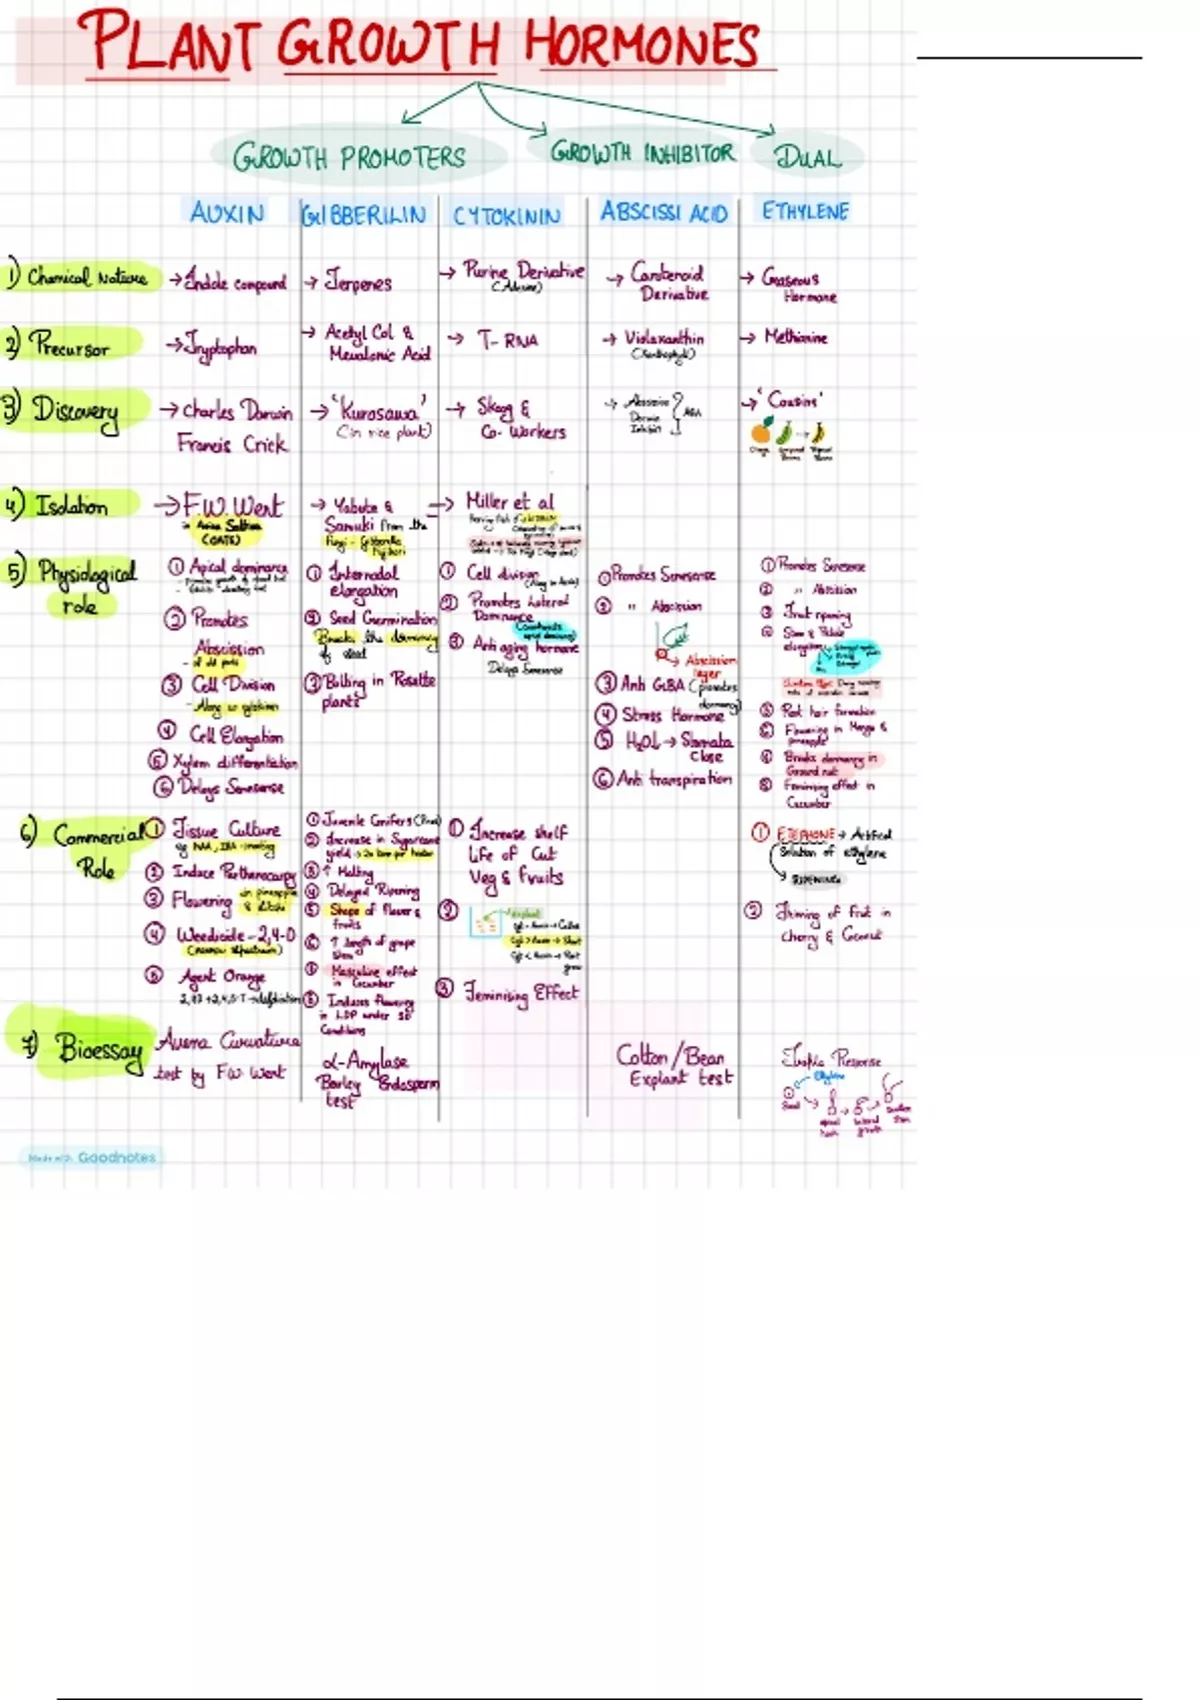 PLANT GROWTH HORMONES
GROWTH PROMOTERS
GROWTH INHIBITOR
DUAL
AUXIN
GIBBERILIN
CYTOKININ
ABSCISSI ACID
ETHYLENE
1) Chemical Nature
→ Indole compound
→ Terpenes
→ Purine Derivative
→ Carotenoid
Derivative
→ Gaseous
Hormone
2) Precursor
→ Tryptophan
→ Acetyl CoA &
Mevalonic Acid
→ T-RNA
→ Violaxanthin
→ Methionine
3) Discovery
→ Charles Darwin
Francis Crick
→ 'Kurosawa'
(in rice plant)
→ Skoog &
Co-Workers
→ 'Cousins'
Orange
4) Isolation
→ F.W. Went
(OATS)
→ Yabuta &
Sumuki from the
fungi - Gibberella
Fujikori
→ Miller et al
5) Physiological
role
① Apical dominance
② Promotes
Abscission
- of old parts
③ Cell Division
- Along w cytokinin
④ Cell Elongation
⑤ Xylem differentiation
⑥ Delays Senesense
① Internodal
elongation
② Seed Germination
Breaks the dormancy
of seed
③ Bolting in Rosette
plants
① Cell division
② Promotes Lateral
Dominance
③ Anti aging hormone
Delays Senesense
① Promotes Senesense
② " Abscission
→ Abscission
layer
③ Anti GBA (promotes
dormancy)
④ Stress Hormone
⑤ H₂O↓ → Stomata
Close
⑥ Anti transpiration
① Promotes Senesense
② " Abscission
③ Fruit ripening
④ Stem & Petiole
elongation
⑤ Root hair formation
⑥ Flowering in Mango &
pineapple
Breaks dormancy in
Ground nut
⑧ Feminising effect in
Cucumber
6) Commercial
Role
① Tissue Culture
② Induce Parthenocarpy
③ Flowering in pineapple
④ Weedicide - 2,4-D
⑤ Agent Orange
① Juvenile Conifers
② Increase in Sugarcane
yield
③ ↑ Malting
④ Delayed Ripening
⑤ Shape of flower &
fruits
⑥ ↑ length of grape
stem
Masculine effect
in Cucumber
⑧ Induces flowering
in LDP under SD
Conditions
① Increase shelf
life of Cut
Veg & fruits
②
explant
③ Feminising Effect
① ETEPHONE → Artificial
Solution of ethylene
RIPENING
② Thining of fruit in
Cherry & Coconut
7) Bioessay
Avena Curvature
test by F.W. Went
α-Amylase
Barley Endosperm
test
Cotton/Bean
Explant test
Triple Response
Ethylene
Seed
Made with Goodnotes